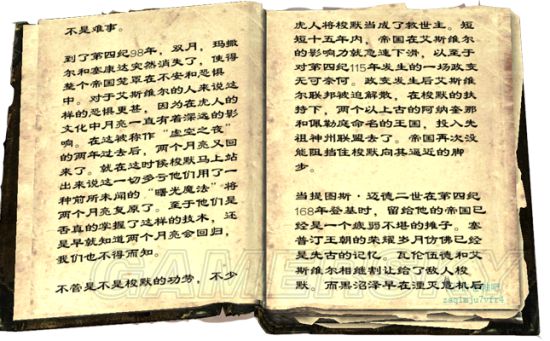 不是难事。
到了第四纪98年，双月，玛撒
尔和塞康达突然消失了，使得
整个帝国笼罩在不安和恐惧
中。对于艾斯维尔的人来说这
样的恐惧更甚，因为在虎人的
文化中月亮一直有着深远的影
响。在这被称作“虚空之夜”
的两年过去后，两个月亮又回
来了。就在这时候梭默马上站
出来说这一切多亏他们用了一
种前所未闻的“曙光魔法”将
两个月亮复原了。至于他们是
否真的掌握了这样的技术，还
是早就知道两个月亮会回归，
我们也不得而知。
不管是不是梭默的功劳，不少
虎人将梭默当成了救世主。短
短十五年内，帝国在艾斯维尔
的影响力就急速下滑，以至于
对第四纪115年发生的一场政变
无可奈何。政变发生后艾斯维
尔联邦被迫解散，在梭默的扶
持下，两个以上古的阿纳奎那
和佩勒庭命名的王国，投入先
祖神州联盟去了。帝国再次没
能阻挡住梭默向其逼近的脚
步。
当提图斯·迈德二世在第四纪
168年登基时，留给他的帝国已
经是一个疲弱不堪的摊子。塞
普汀王朝的荣耀岁月仿佛已经
是先古的记忆。瓦伦伍德和艾
斯维尔相继割让给了敌人梭
默。而黑沼泽早在湮灭危机后
GAMERSKY
zaqimju7vfr4